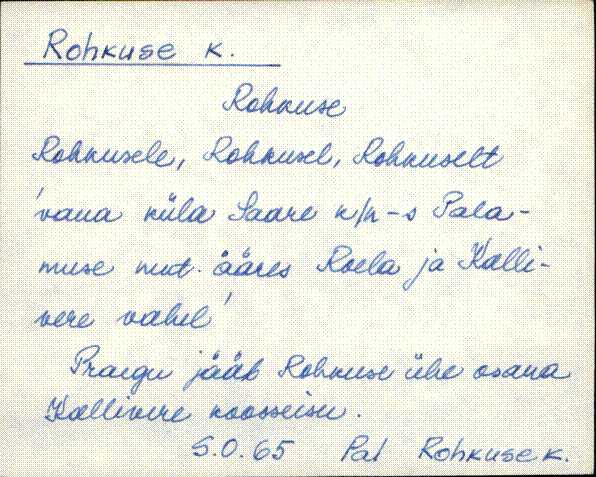 Rohkuse k.
Rohkuse
Rohkusele, Rohkusel, Rohkuselt
'vana küla Saare k/n-s Pala-
muse mnt. ääres Roela ja Kalli-
vere vahel'
Praegu jääb Rohkuse ühe osana
Kallivere koosseisu.
S.O. 65 Pal Rohkuse k.